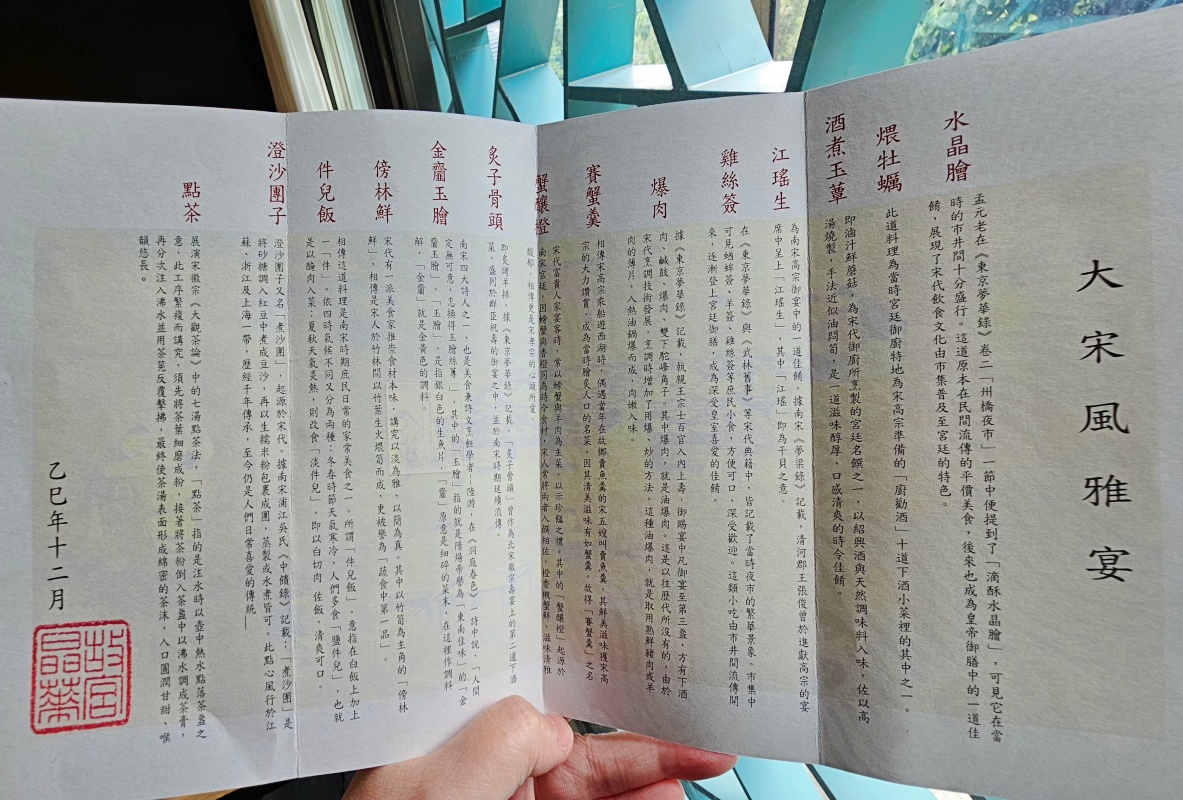 大宋風雅宴
水晶膾
孟元老在《東京夢華錄》卷二「州橋夜市」一節中便提到了「滴酥水晶膾」，可見它在當
時的市井間十分盛行。這道原本在民間流傳的平價美食，後來也成為皇帝御膳中的一道佳
餚，展現了宋代飲食文化由市集普及至宮廷的特色。
煨牡蠣
此道料理為當時宮廷御廚特地為宋高宗準備的「廚勸酒」十道下酒小菜裡的其中之一。
酒煮玉蕈
即滷汁鮮蘑菇，為宋代御廚所烹製的宮廷名饌之一，以紹興酒與天然調味料入味，佐以高
湯燒製，手法近似油悶筍，是一道滋味醇厚、口感清爽的時令佳餚。
江瑤生
為南宋高宗御宴中的一道佳餚。據南宋《夢粱錄》記載，清河郡王張俊曾於進獻高宗的宴
席中呈上「江瑤生」，其中「江瑤」即為干貝之意。
雞絲簽
在《東京夢華錄》與《武林舊事》等宋代典籍中，皆記載了當時夜市的繁華景象。市集中
可見蝤蛑簽、羊簽、雞絲簽等庶民小食，方便可口、深受歡迎。這類小吃由市井間流傳開
來，逐漸登上宮廷御膳，成為深受皇室喜愛的佳餚。
爆肉
據《東京夢華錄》記載，執親王宗士百官入內上壽，御賜宴中凡御宴至第三盞，方有下酒
肉、鹹鼓、爆肉、雙下駝峰角子。其中爆肉，就是油爆肉。這是以往歷代所沒有的，由於
宋代烹調技術發展，烹調時增加了用爆、炒的方法，這種油爆肉，就是取用熟鮮豬肉或羊
肉的薄片，入熱油鍋爆而成，肉嫩入味。
賽蟹羹
相傳宋高宗乘船遊西湖時，偶遇當年在故鄉賣魚羹的宋五嫂叫賣魚羹，其鮮美滋味獲宋高
宗的大力讚賞，成為當時膾炙人口的名菜。因其清美滋味有如蟹羹，故得「賽蟹羹」之名
蟹釀橙
宋代富貴人家宴客時，常以螃蟹與羊肉為主菜，以示珍饈之禮。其中的「蟹釀橙」起源於
南宋宮廷，因螃蟹與香橙同為時令食材，宋人常將兩者入饌相佐，橙香襯蟹鮮，滋味清雅
馥郁，相傳更是宋孝宗的心頭所愛。
炙子骨頭
即炙烤羊排，據《東京夢華錄》記載，「炙子骨頭」曾作為北宋徽宗壽宴上的第二道下酒
菜，盛列於群臣祝壽的御宴之中，並於南宋時期延續流傳。
金齏玉膾
南宋四大詩人之一、也是美食兼詩文烹飪學者—陸游，在《洞庭春色》一詩中說，「人間
定無可意，怎換得玉膾絲蓴」，其中的「玉膾」指的就是隋煬帝譽為「東南佳味」的「金
齏玉膾」。「玉膾」，是指銀白色的生魚片，「齏」原意是細碎的菜末，在這裡作調料
解，「金齏」就是金黃色的調料。
傍林鮮
宋代有一派美食家推崇食材本味，講究以淡為雅、以簡為真。其中以竹筍為主角的「傍林
鮮」，相傳是宋人於竹林間以竹葉生火煨筍而成，更被譽為「蔬食中第一品」。
件兒飯
相傳這道料理是南宋時期庶民日常的家常美食之一。所謂「件兒飯」，意指在白飯上加上
「一件」。依四時氣候不同又分為兩種：冬春時節天氣寒冷，人們多食「鹽件兒」，也就
是以醃肉入菜；夏秋天氣炎熱，則改食「淡件兒」，即以白切肉 佐飯，清爽可口。
澄沙團子
澄沙團子又名「煮沙團」，起源於宋代。據南宋浦江吳氏《中饋錄》記載：「煮沙團」是
將砂糖調入紅豆中煮成豆沙，再以生糯米粉包裹成團，蒸製或水煮皆可。此點心風行於江
蘇、浙江及上海一帶，歷經千年傳承，至今仍是人們日常喜愛的傳統—
點茶
展演宋徽宗《大觀茶論》中的七湯點茶法，「點茶」指的是注水時以壺中熱水點落茶盞之
意，此工序繁複而講究，須先將茶葉細磨成粉，接著將茶粉倒入茶盞中以沸水調成茶膏，
再分次注入沸水並用茶筅反覆擊拂，最終使茶湯表面形成綿密的茶沫，入口圓潤甘甜、喉
韻悠長。
乙巳年十二月
故宮
晶華